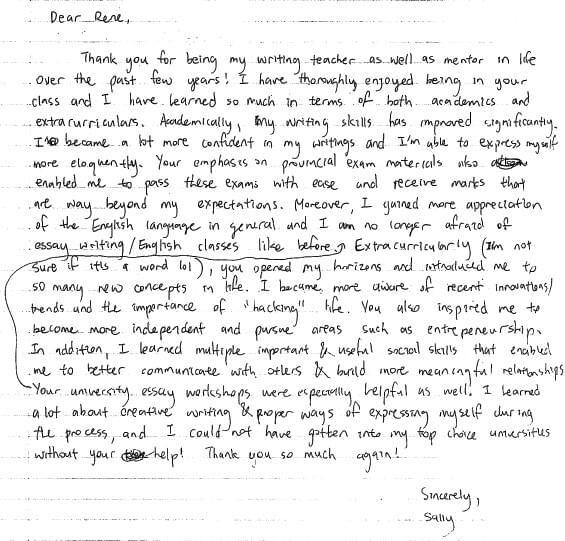 Dear Rene,
Thank you for being my writing teacher as well as mentor in life
over the past few years! I have thoroughly enjoyed being in your
class and I have learned so much in terms of both academics and
extracurriculars. Academically, my writing skills has improved significantly.
I became a lot more confident in my writings and I'm able to express myself
more eloquently. Your emphases on provincial exam materials also
enabled me to pass these exams with ease and receive marks that
are way beyond my expectations. Moreover, I gained more appreciation
of the English language in general and I am no longer afraid of
essay writing/English classes like before. Extracurricularly (I'm not
sure if it's a word lol), you opened my horizons and introduced me to
so many new concepts in life. I became more aware of recent innovations/
trends and the importance of "hacking" life. You also inspired me to
become more independent and pursue areas such as entrepeneurship.
In addition, I learned multiple important & useful social skills that enabled
me to better communicate with others & build more meaningful relationships
Your university essay workshops were especially helpful as well. I learned
a lot about creative writing & proper ways of expressing myself during
the process, and I could not have gotten into my top choice universities
without your help! Thank you so much again!
Sincerely,
Sally